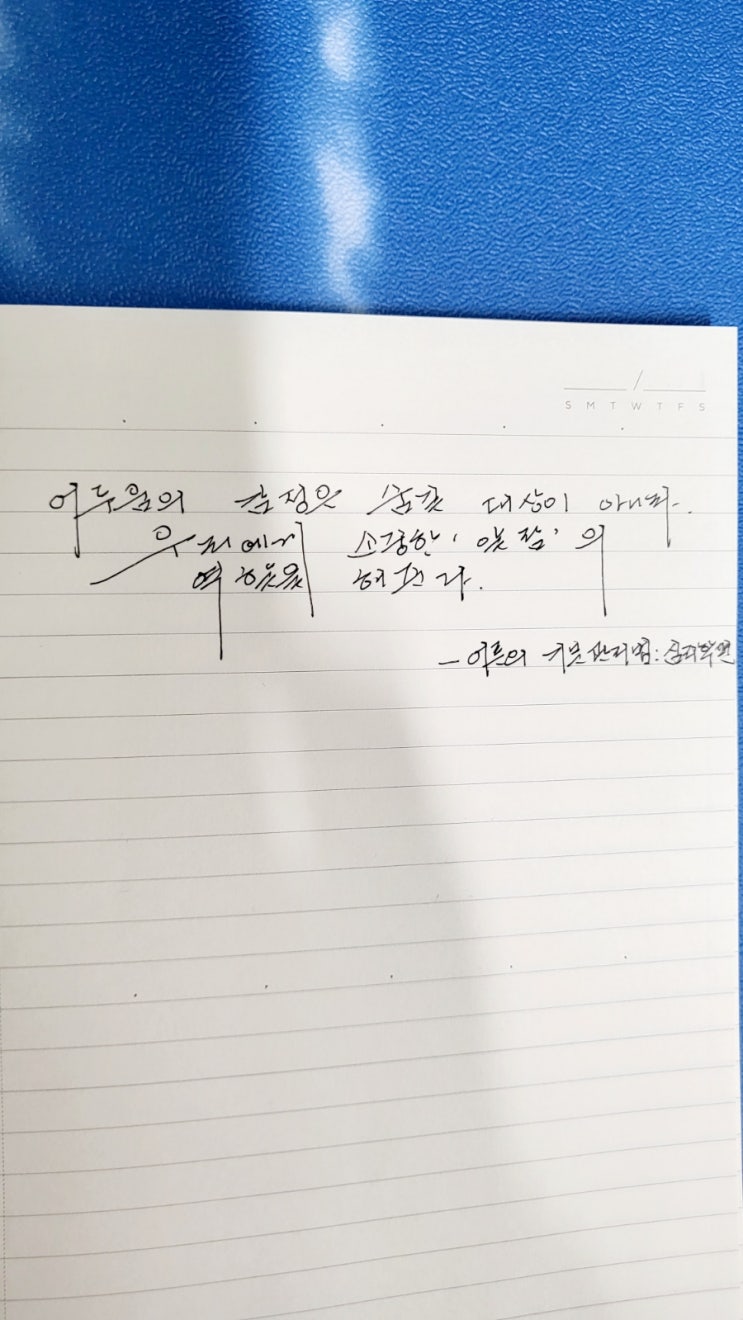 /
S M T W T F S
어두움의 감정은 숨길 대상이 아니다.
우리에게 소중한 '일침'의
역할을 해준다.
- 어른의 기분 관리법: 심리학